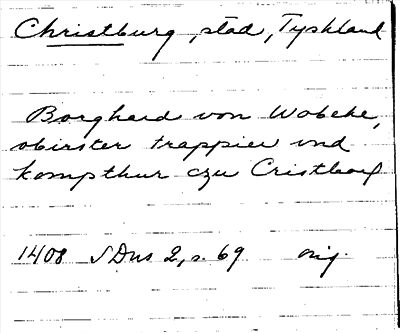 Christburg, stad, Tyskland
Borghard von Wobeke,
obirster trappier vnd
kompthur czu Cristborg
1408 SDns 2, s. 69 orig.